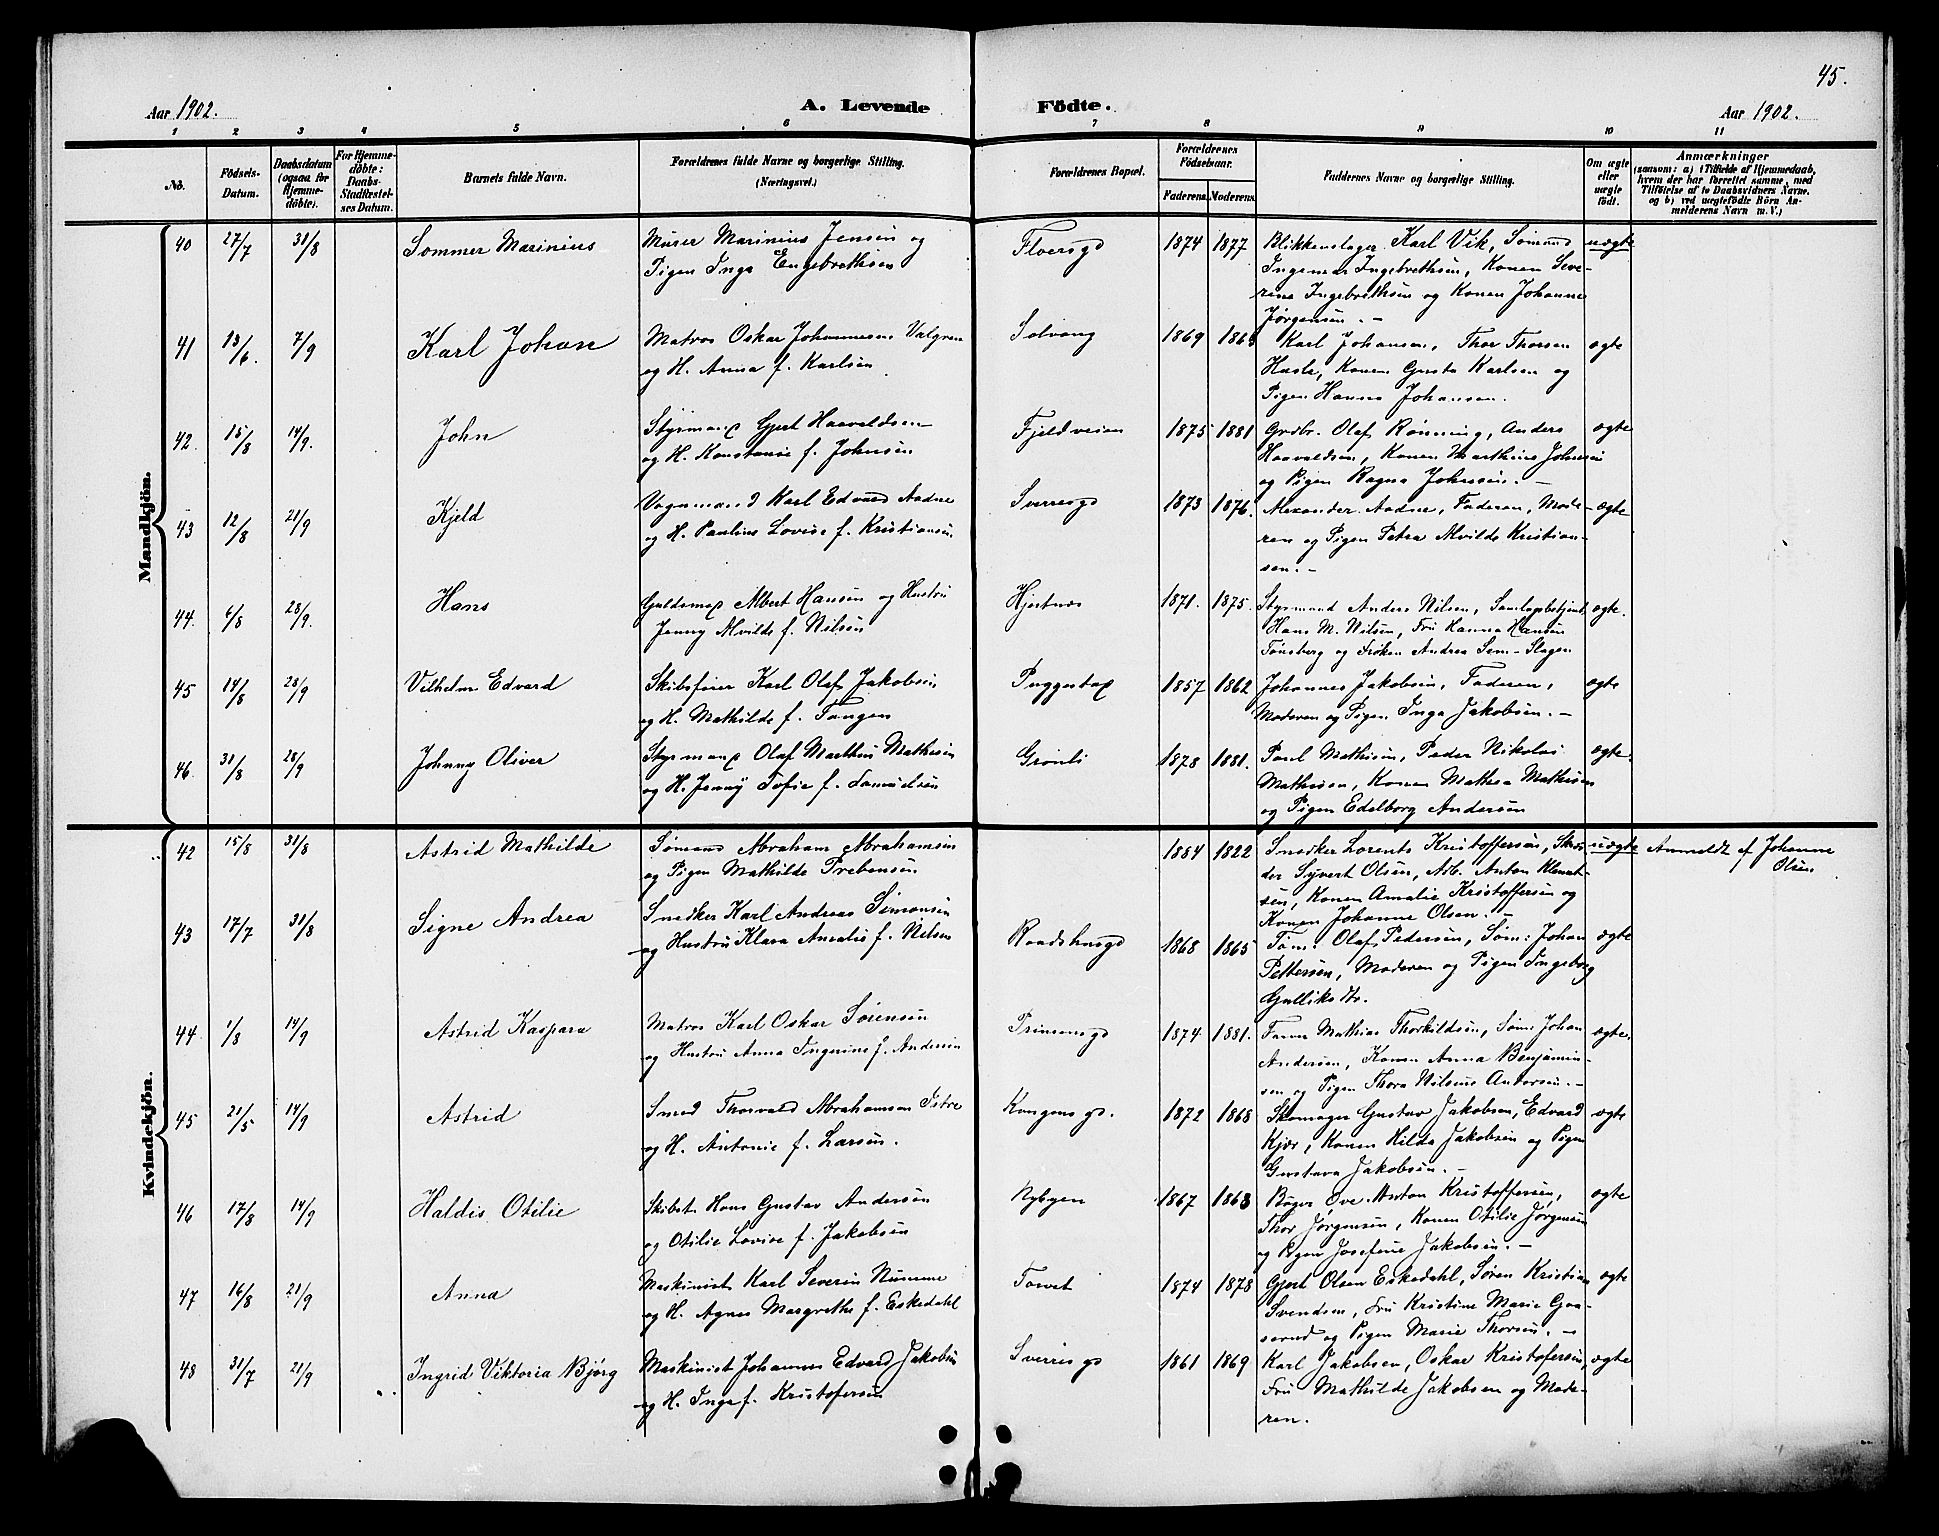 45.
Aar 1902.
A. Levende
Födte.
Aar 1902.
1 2 3 4 5 6 7 8 9 10 11
No.
Födsels-
Datum.
Daabsdatum
(ogsaa for
Hjemme-
döbte).
For Hjemme-
döbte:
Daabs-
Stadfæstel-
ses Datum.
Barnets fulde Navn.
Forældrenes fulde Navne og borgerlige Stilling.
(Næringsvei.)
Forældrenes Bopæl.
Forældrenes
Födselsaar.
Faderens. Moderens.
Faddernes Navne og borgerlige Stilling.
Om ægte
eller
uægte
født.
Anmærkninger
(saasom: a) i Tilfælde af Hjemmedaab,
hvem der har forrettet samme, med
Tilföielse af to Daabsvidners Navne,
og b) ved uægtefödte Börn An-
melderens Navn m. V.)
Mandkjön.
40 27/7 31/8 Sommer Marinius
Murer Marinius Jensen og
Pigen Inga Engebrethsen
Floersgd 1874 1877
Blikkenslager Karl Vik, Sømand
Ingemar Ingebrethsen, Konen Seve-
rine Ingebrethsen og Konen Johanne
Jørgensen. –
uægte
41 13/6. 7/9 Karl Johan
Matros Oskar Johannesen Valgren
og H. Anna f. Karlsen
Solvang 1869
Karl Johansen, Thor Thorsen
Hasle, Konen Gusta Karlsen og
Pigen Hanna Johansen.
ægte
42. 15/8 14/9. John
Styrmand Gjert Haavaldsen
og H. Konstanse f. Johnsen
Fjeldveien 1875 1881
Grdbr. Olaf Rønning, Anders
Haavaldsen, Konen Marthine Johnsen
og Pigen Ragna Johnsen. –
ægte
43 12/8 21/9 Kjeld
Vognmand Karl Edvard Aadne
og H. Pauline Lovise f. Kristiansen.
Sverresgd 1873 1876.
Alexander Aadne, Faderen, Mode-
ren og Pigen Petra Alvilde Kristian-
sen. –
ægte
44. 6/8 28/9. Hans
Guldsmed Albert Hansen og Hustru
Jenny Alvilde f. Nilsen
Hjertnes 1871. 1875.
Styrmand Anders Nilsen,
Hans M. Nilsen, Fru Hanna Hansen
Tønsberg og Frøken Andrea Sem – Slagen
ægte.
45 14/8 28/9 Vilhelm Edvard
Skibsfører Karl Olaf Jakobsen
og H. Mathilde f. Tangen
1857 1862
Johannes Jakobsen, Faderen,
Moderen og Pigen Inga Jakobsen. –
ægte
46. 31/8 28/9 Johnny Oliver
Styrmand Olaf Marthin Mathisen
og H. Jenny Sofie f. Samuelsen
Grønli 1878 1881.
Paul Mathisen, Peder Nikolai
Mathisen, Konen Mathea Mathisen
og Pigen Edelborg Andersen
ægte.
Kvindekjön.
42 15/8 31/8 Astrid Mathilde
Sømand Abraham Abrahamsen
og Pigen Mathilde Prebensen
1884 1822
Snedker Lorents Kristoffersen, Skræ-
der Syvert Olsen, Arb. Anton Klemet-
sen, Konen Amalie Kristoffersen og
Konen Johanne Olsen. –
uægte Anmeldt af Johanne
Olsen
43 17/7 31/8 Signe Andrea
Snedker Karl Andreas Simonsen
og Hustru Klara Amalie f. Nilsen
Raadshusgd 1868 1865
Tøm. Olaf Pedersen, Søm: Johan
Pettersen, Moderen og Pigen Ingeborg
Gulliksdtr.
ægte
44 1/8 14/9 Astrid Kaspara
Matros Karl Oskar Sørensen
og Hustru Anna Ingerine f. Andersen
Prinsensgd 1874 1881.
Mathias Thorkildsen, Søm. Johan
Andersen, Konen Anna Benjamin-
sen og Pigen Thora Nilsine Andersen. –
ægte.
45 21/5 14/9 Astrid
Smed Thorvald Abrahamsen Istre
og H. Antonie f. Larsen.
Kongens gd. 1872 1868
Skomager Gustav Jakobsen, Edvard
Kjær, Konen Hilda Jakobsen og Pigen
Gustava Jakobsen. –
ægte
46 17/8 14/9 Haldis Otilie
Skibst. Hans Gustav Andersen
og Otilie Lovise f. Jakobsen
Nybyen 1867 1868
Bager Ove Anton Kristoffersen,
Thor Jørgensen, Konen Otilie Jørgensen
og Pigen Josefine Jakobsen. –
ægte
47 16/8 21/9 Anna
Maskinist Karl Severin Numme
og H. Agnes Margrethe f. Eskedahl
Torvet 1874 1878
Gjert Olsen Eskedahl, Søren Kristian
Svendsen, Fru Kristine Marie Gaa-
serud og Pigen Marie Thorsen. –
ægte
48 31/7 21/9 Ingrid Viktoria Bjørg
Maskinist Johannes Edvard Jakobsen
og H. Inga f. Kristofersen
Sverres gd 1861 1869
Karl Jakobsen, Oskar Kristofersen,
Fru Mathilde Jakobsen og Mode-
ren.
ægte